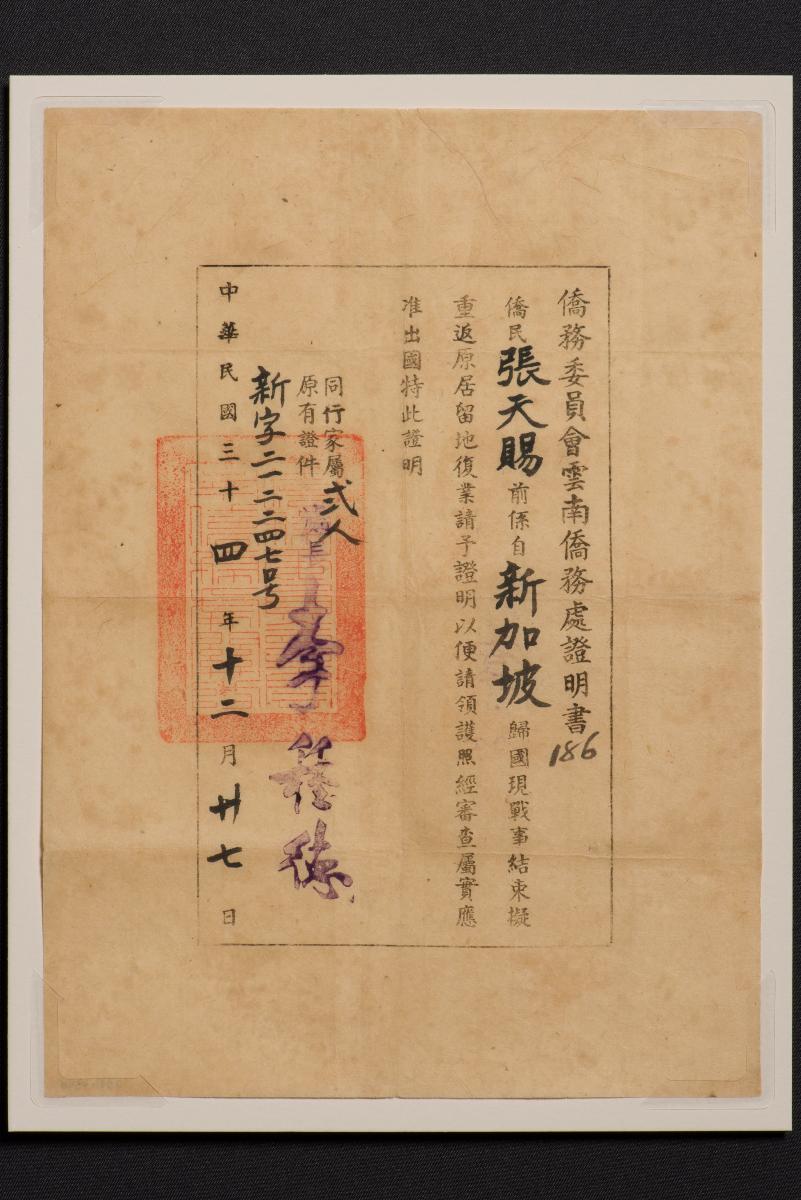 僑務委員會雲南僑務處證明書
186
僑民張天賜前係自新加坡歸國現戰事結束擬
重返原居留地復業請予證明以便請領護照經審查屬實應
准出國特此證明
同行家屬弍人
原有證件
新字二一二二四七号
中華民國三十四年十二月廿七日